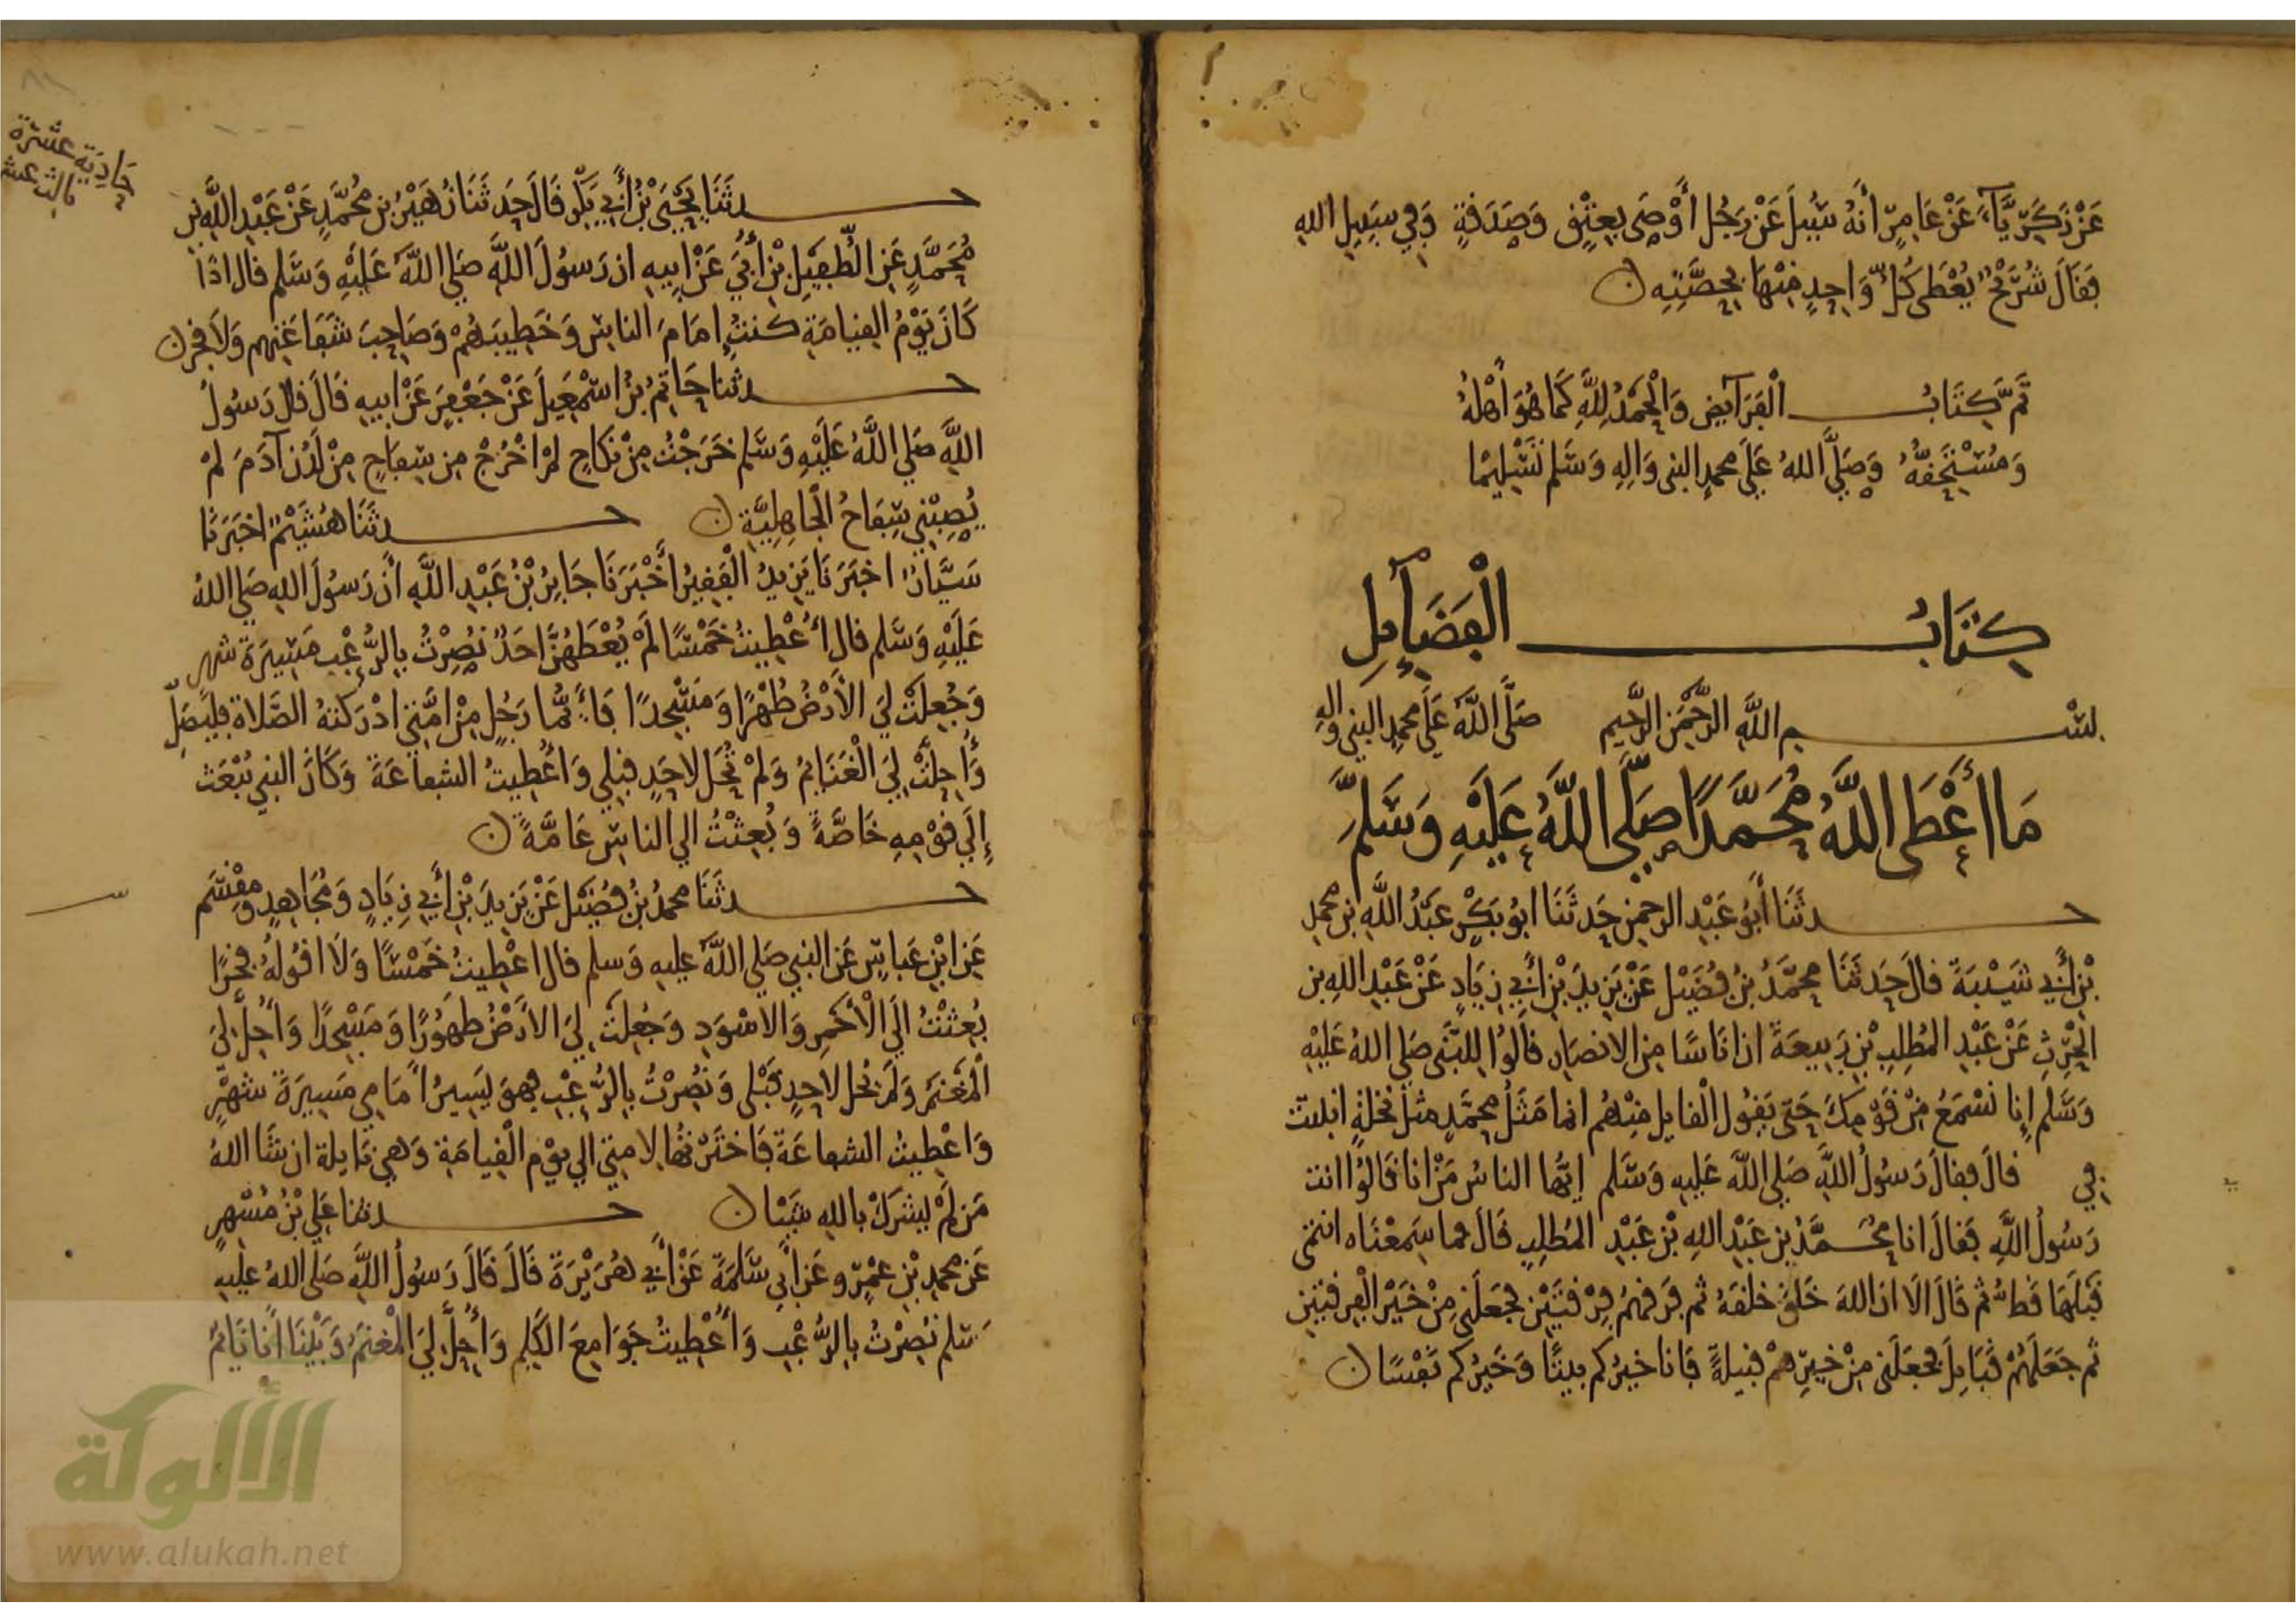 عَنْ زَكَرِيَّآءَ عَنْ عَامِرٍ أَنَّهُ سُئِلَ عَنْ رَجُلٍ أَوْصَى بِعِتْقٍ وَصَدَقَةٍ وَفِي سَبِيلِ اللهِ
فَقَالَ شُرَيْحٌ يُعْطَى كُلُّ وَاحِدٍ مِنْهَا بِحِصَّتِهِ ن
تَمَّ كِتَابُ الْفَرَآئِضِ وَالْحَمْدُ لِلَّهِ كَمَا هُوَ أَهْلُهُ
وَمُسْتَحِقُّهُ وَصَلَّى اللهُ عَلَى محمدٍ النبي وَالِهِ وَسَلم تَسْلِيمًا
كِتَابُ الْفَضَآئِلِ
بسْم اللَّهِ الرَّحْمَنِ الرَّحِيمِ صَلَّى اللَّهُ عَلَى محمدٍ النبي واله
مَا أَعْطَى اللَّهُ مُحَمَّدًا صَلَّى اللَّهُ عَلَيْهِ وَسَلَّمَ
حدثَنَا أَبُو عَبْدِ الرحمن حَدثَنَا ابُو بَكْرٍ عَبْدُ اللَّهِ بن محمدِ
بْنِ أَبِي شَيْبَةَ قالَ حَدثَنَا محمَّدُ بنُ فُضَيْلٍ عَنْ يَزِيدَ بْنِ أَبِي زِيَادٍ عَنْ عَبْدِ اللهِ بن
الحٰرِثِ عَنْ عَبْدِ المُطلِبِ بْنِ رَبِيعَةَ ان نَاسًا مِن الانصَارِ قالُوا لِلنَّبِي صَلى اللهُ عَلَيْهِ
وَسَلم إِنا نَسْمَعُ مِنْ قَوْمِكَ حَتى يَقُول الْقايل مِنْهُم انما مَثَلُ محمَّدٍ مثل نخلةٍ انبتت
في قالَ فقالَ رَسُولُ اللَّهِ صَلى اللَّهُ عَلِيهِ وَسَلم ايُّها الناسُ مَنْ انا قَالُوا انت
رَسُولُ اللَّهِ فَقالَ انا محَمَّدُ بن عَبْدِ اللهِ بْنِ عَبْدِ المُطلِبِ قالَ فما سَمِعْنَاه انتمَى
قَبْلَهَا قَطُّ ثم قَالَ الَا ان اللهَ خَلَقَ خلقَهُ ثم فَرقهُم فِرْقتَيْنِ فجَعَلَنِي مِنْ خَيْرِ الْفِرقتينِ
ثم جَعَلَهُمْ قَبَايِلَ فجَعَلَنِي مِنْ خيرِهمْ قبيلةً فَانا خيرُكم بيتًا وَخَيرُكم نَفْسًا ن
حَادِيَة عَشرَة
ثالث عشر
حدثَنَا يَحْيَى بْنُ أَبِي بُكَيْرٍ قَالَ حَدثَنَا زُهَيْرُ بن مُحمَّدٍ عَنْ عَبْدِ اللَّهِ بنِ
مُحَمَّدٍ عَنِ الطُّفَيْلِ بْنِ أُبَيٍّ عَنْ ابِيهِ ان رَسُولَ اللَّهِ صَلى اللَّهُ عَلَيْهِ وَسَلم قال اذَا
كَانَ يَوْمُ القِيامَةِ كنتُ إمَامَ الناسِ وَخَطِيبَهُمْ وَصَاحِبَ شَفَاعَتِهِم وَلَا فَخْرَ ن
حدثنا حَاتِمُ بْنُ اسْمٰعِيلَ عَنْ جَعْفَرٍ عَنْ ابيهِ قَالَ قالَ رَسُولُ
اللَّهِ صَلى اللَّهُ عَلَيْهِ وَسَلم خَرَجْتُ مِنْ نِكَاحٍ لَمْ اخْرُجْ مِن سِفَاحٍ مِنْ لَدُنْ آدَمَ لَمْ
يُصِبْنِي سِفَاحُ الْجَاهِلِيَّةِ ن حدثَنَا هُشَيْمٌ اخبَرَنَا
سَيَّارٌ اخبَرَنَا يَزِيدُ الْفَقِيرُ أَخْبَرَنَا جَابِرُ بْنُ عَبْدِ اللَّهِ أَنَّ رَسُولَ اللهِ صَلى اللهُ
عَلَيْهِ وَسَلم قال أُعْطِيتُ خَمْسًا لَمْ يُعْطَهُنَّ احَدٌ نُصِرْتُ بِالرُّعْبِ مَسِيرَةَ شهرٍ
وَجُعِلَتْ لِيَ الأَرْضُ طُهْرًا وَمَسْجدًا فَأَيُّمَا رَجُلٍ مِنْ امَّتِي ادْرَكَتهُ الصَّلاة فليُصَلِّ
وَأُحِلَّتْ لِيَ الْغَنَايِمُ وَلَمْ تُحَل لاحَدٍ قبلِي وَاعْطِيتُ الشفاعَةَ وَكَانَ النبي يُبْعَث
إِلَى قوْمِهِ خَاصَّةً وَبُعِثْتُ الي الناسِ عَامَّةً ن
حدثَنَا محمدُ بنُ فُضَيْل عَنْ يَزِيدَ بْنِ أَبِي زِيَادٍ وَمُجَاهِدٍ وَمِقْسَم
عَنِ ابْنِ عَباسٍ عَن النبِي صَلى اللَّهُ عليهِ وَسلم قال اعْطِيتُ خَمْسًا وَلَا اقُولُهُ فَخْرًا
بُعِثْتُ الَى الْأَحْمَرِ وَالاسْوَدِ وَجُعِلَتْ لِيَ الأَرْضُ طهُورًا وَمَسْجدًا وَأُحِلَّ لِيَ
الْمَغْنَمُ وَلَمْ يُحل لاحِدٍ قَبْلي وَنُصِرْتُ بِالرُّعْبِ فهوَ يَسِيرُ أَمَامِي مَسِيرَةَ شَهْرٍ
وَاعْطِيتُ الشفاعَةَ فَاخَّرْتُها لامتي الي يوْم الْقِيامَةِ وَهي نايلة ان شَا اللهُ
مَن لَمْ يشركْ باللهِ شَيْئا ن حدثنا عَلي بْنُ مُسْهِرٍ
عَن محمدِ بْنِ عَمْرٍو عَن أَبِي سَلَمَةَ عَنْ أَبِي هُرَيْرَةَ قَالَ قَالَ رَسُولُ اللَّهِ صَلى اللهُ عليهِ
وَسَلم نُصِرْتُ بِالرُّعْبِ وَأُعْطِيتُ جَوَامِعَ الْكَلِمِ وَأُحِلَّ لِيَ الْمَغْنَمُ وَبَيْنَا أَنا نَايِمٌ
الألوكة
www.alukah.net